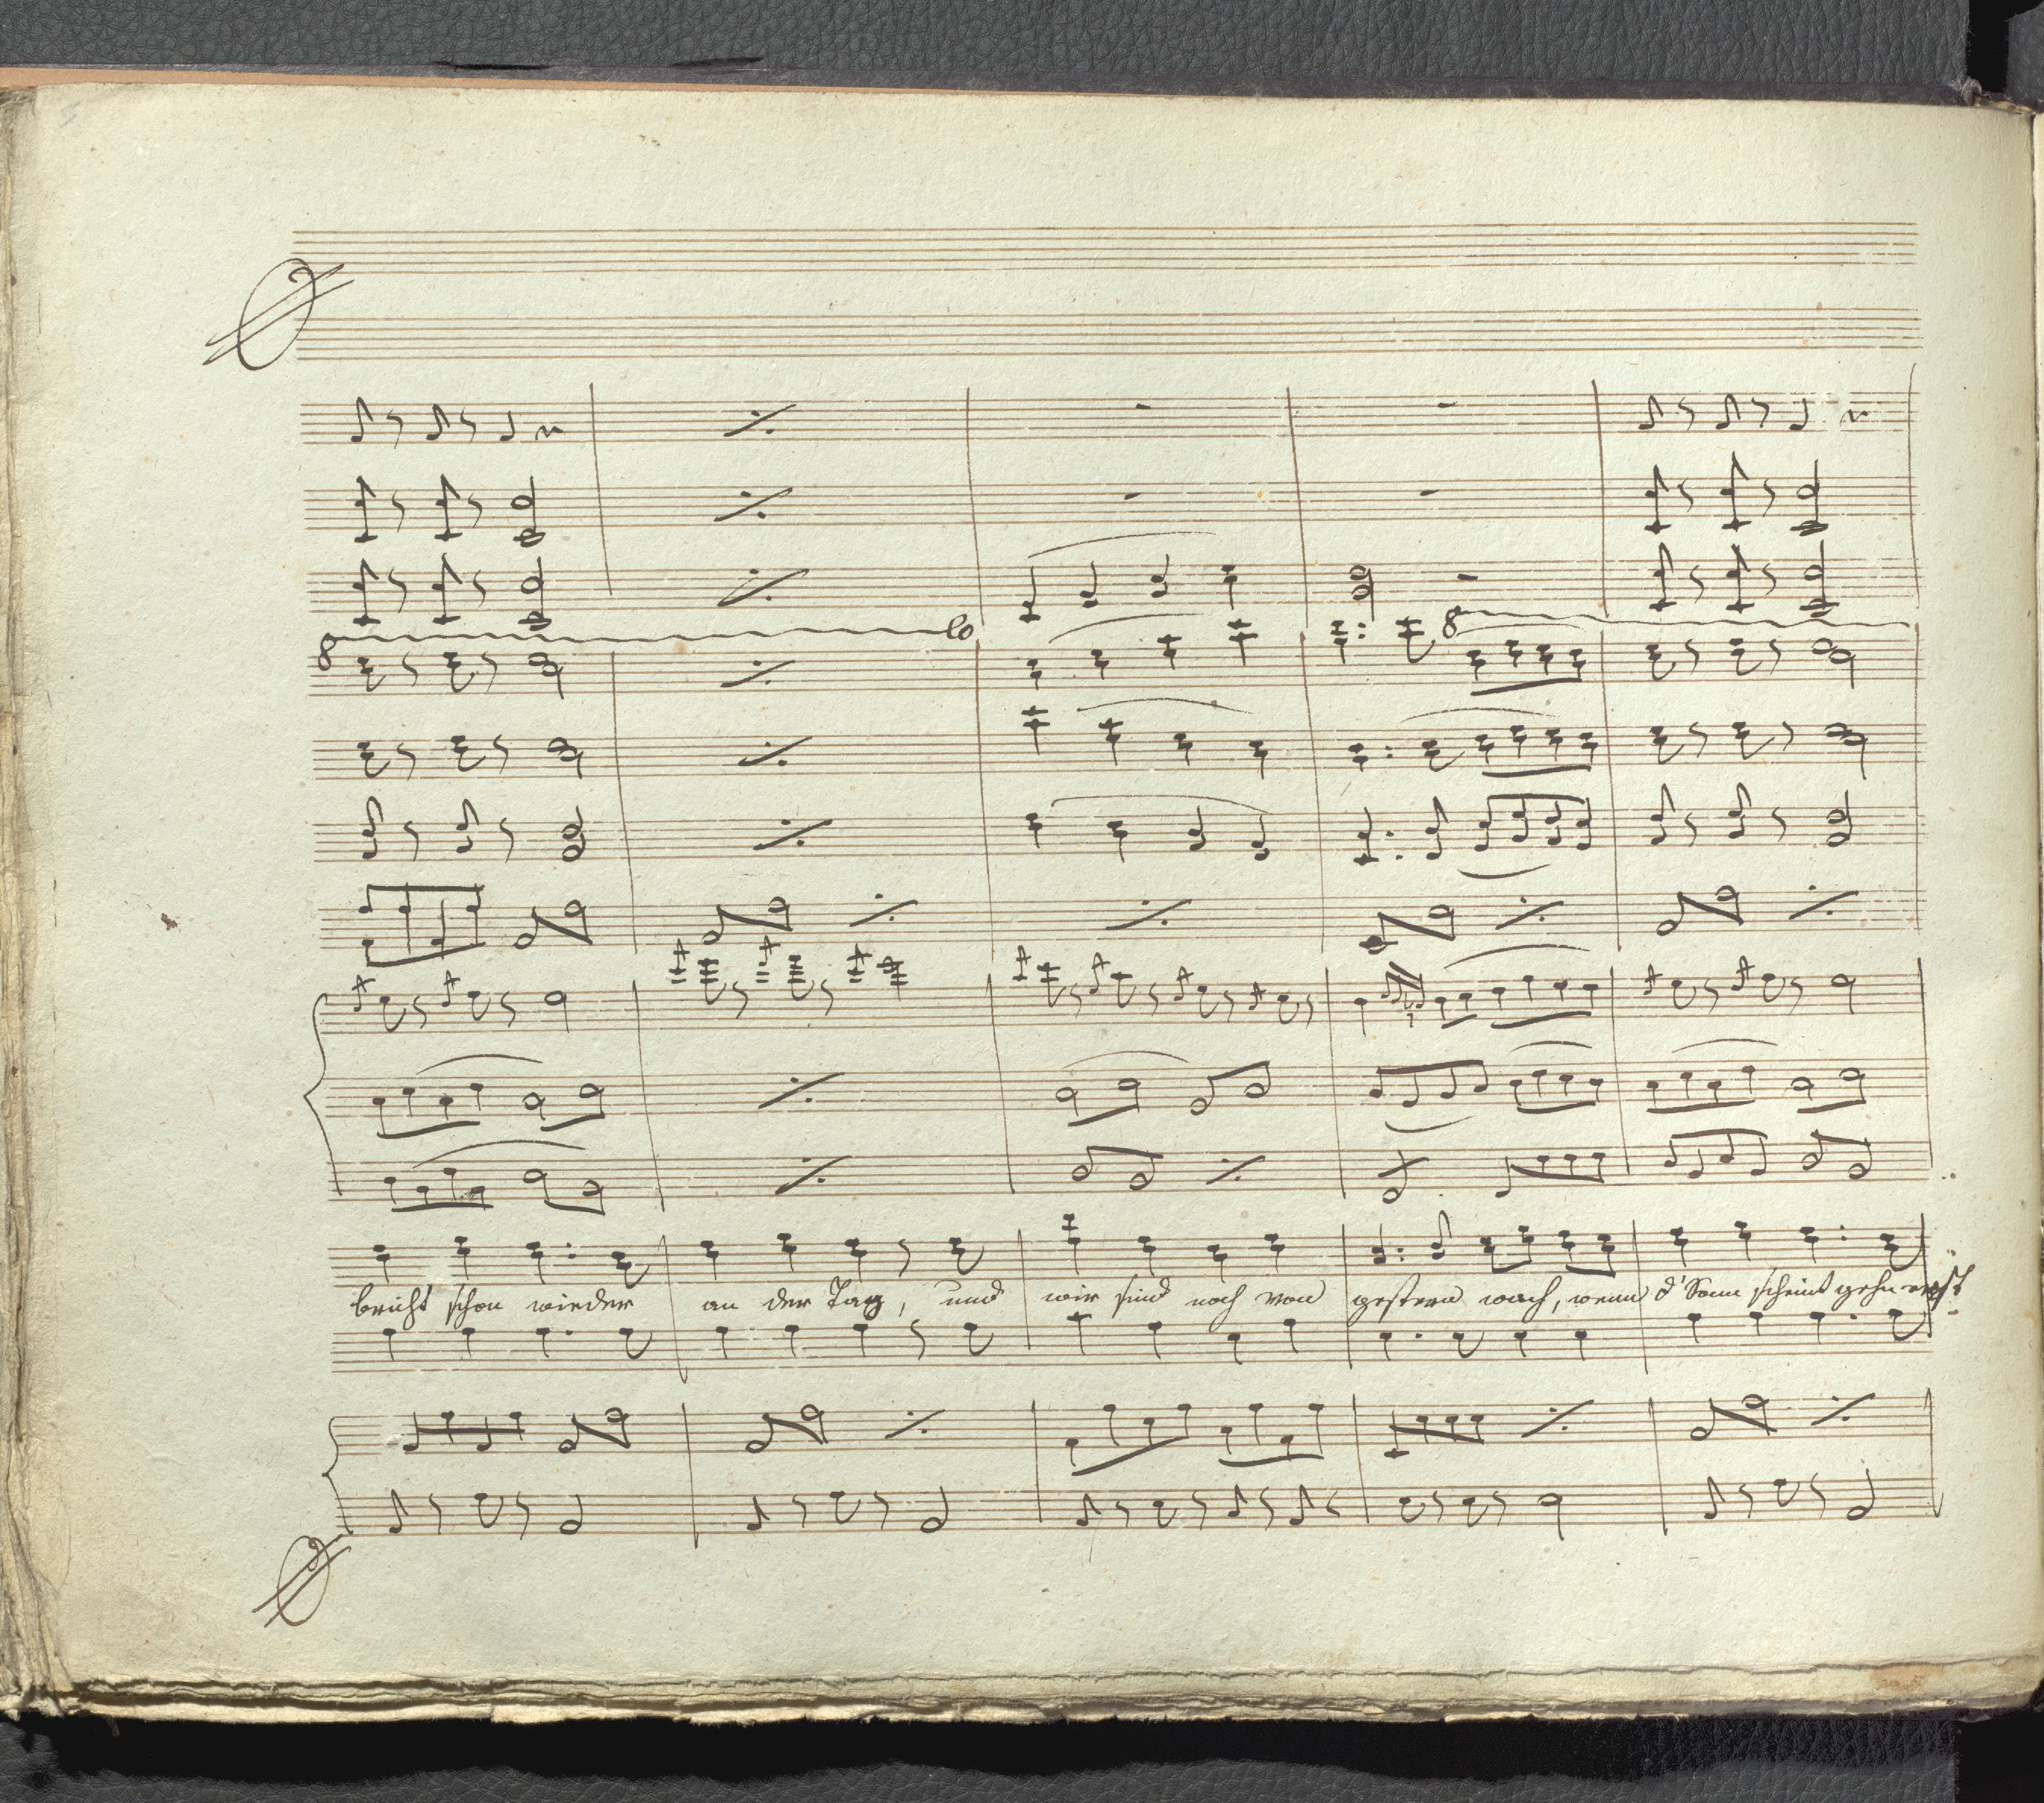 8 lo
8
bricht schon wieder an der Tag, und wir sind noch von gestern wach, wenn d' Sonn scheint gehn erst